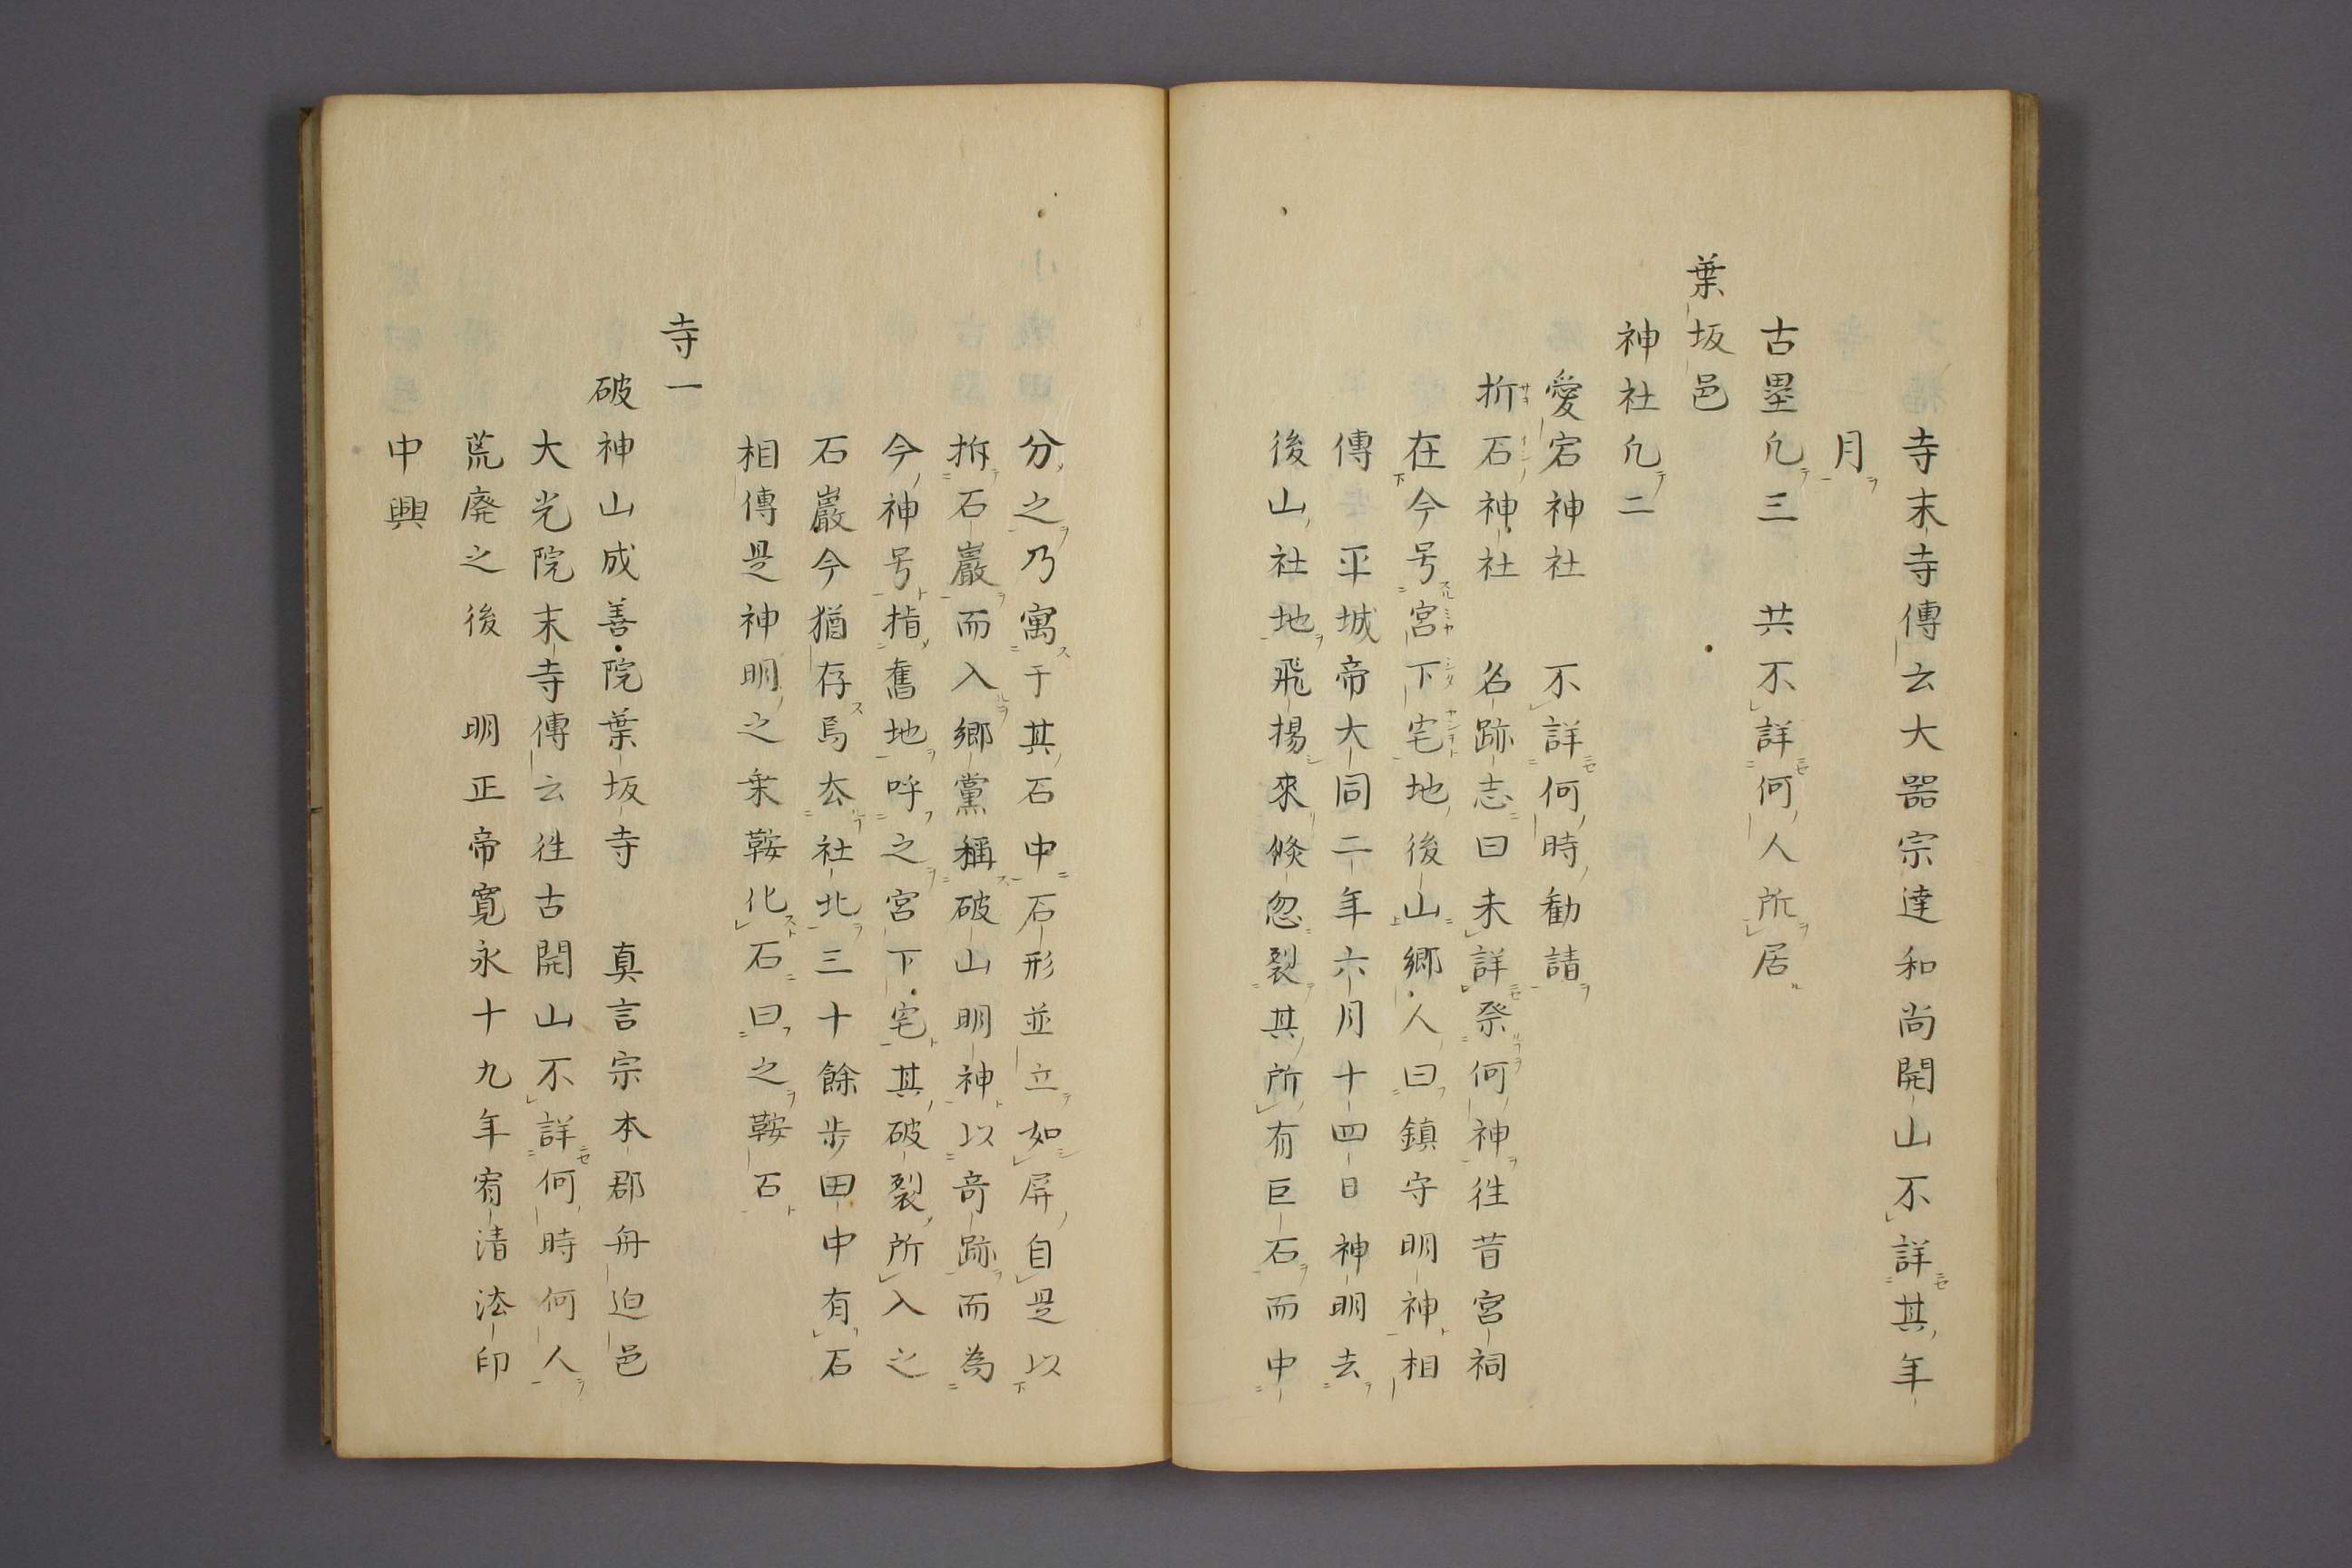 寺末寺傳云大器宗達和尚開山不詳其年
月
古塁凢三　共不詳何人所居
葉坂邑
神社凢二
愛宕神社　不詳何時勧請
折石神社　名跡志曰未詳祭何神徃昔宮祠
在今号宮下宅地後山郷人曰鎮守明神相
傳平城帝大同二年六月十四日神明去
後山社地飛揚來倐忽裂其所有巨石而中
分之乃寓于其石中石形並立如屏自是以
拆石巖而入郷黨稱破山明神以奇跡而為
今神号指舊地呼之宮下宅其破裂所入之
石巖今猶存焉厺社北三十餘歩田中有石
相傳是神明之乗鞍化石曰之鞍石
寺一
破神山成善院葉坂寺　真言宗本郡舟迫邑
大光院末寺傳云徃古開山不詳何時何人
荒廃之後　明正帝寛永十九年宥清法印
中興